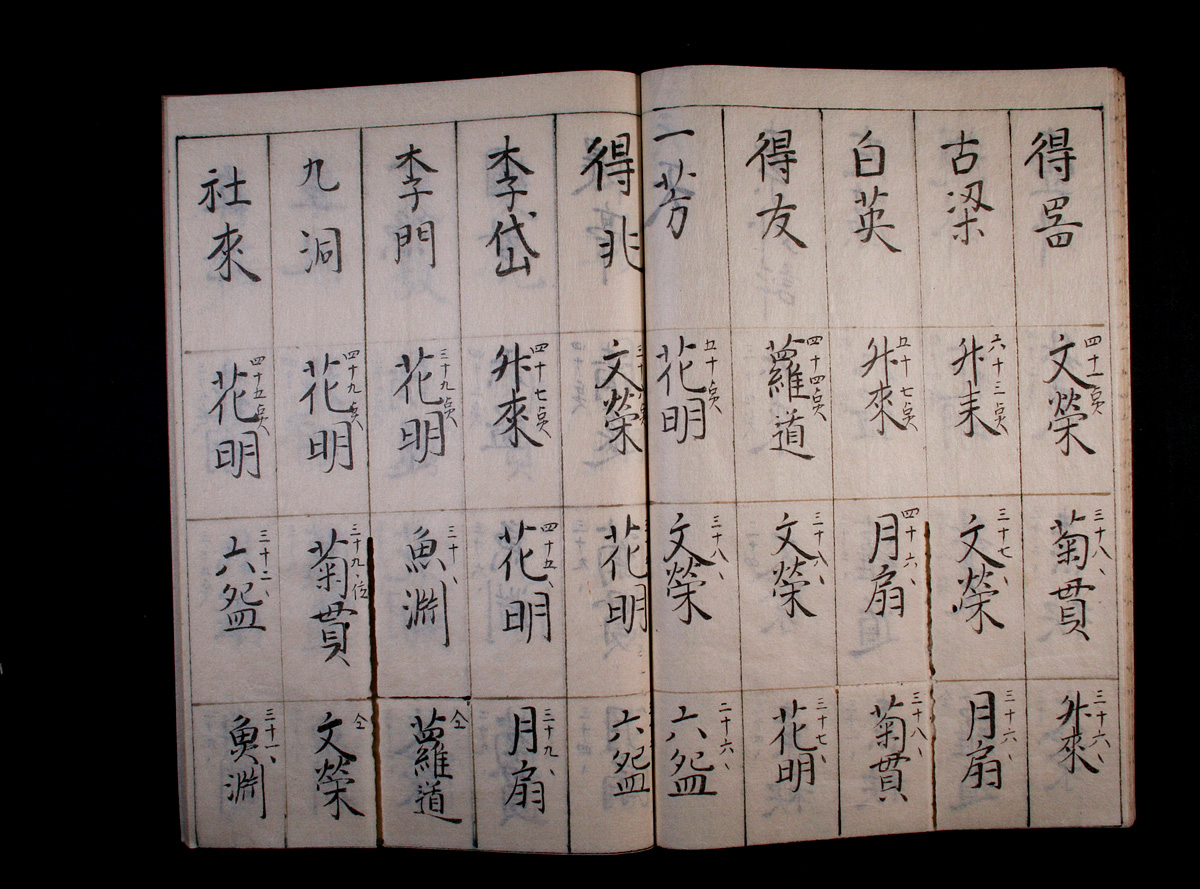 得器
四十一点
文榮
三十八、
菊貫
三十六、
舛來
古梁
六十三点
舛耒
三十七、
文榮
三十六、
月扇
白英
五十七点
舛來
四十六、
月扇
三十八、
菊貫
得友
四十四点
蘿道
三十八、
文榮
三十七、
花明
一芳
五十点
花明
三十八、
文榮
二十六、
六盌
得兆
文榮
花明
六盌
李岱
四十七点
舛來
四十五、
花明
三十九、
月扇
李門
三十九点
花明
三十、
魚淵
仝
蘿道
九洞
四十九点
花明
三十九、位
菊貫
仝
文榮
社來
四十五点
花明
三十二、
六盌
三十一、
魚淵